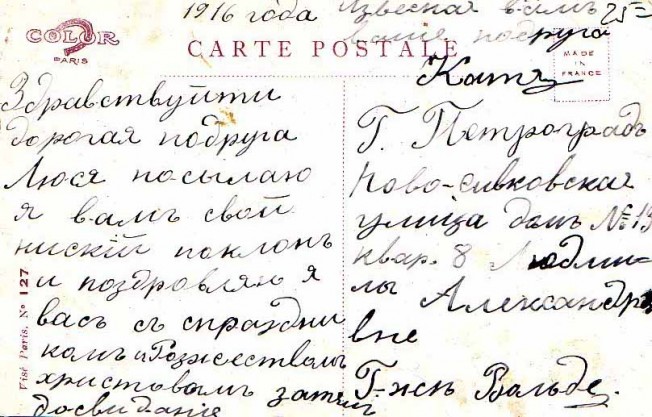 1916 года Извесная вамъ 25=
ваша подруга
Катя
COLOR
PARIS
CARTE POSTALE
MADE
IN
FRANCE
Здравствуйти
дорогая подруга
Люся посылаю
я вамъ свой
ниский поклонъ
и поздровляю я
васъ съ спраздни
комъ и Рожжеством
христовымъ затем
досвидание
Г. Петроградъ
Ново-сивковская
улица домъ № 13
квар. 8 Людми-
лы Александро
вне
Г-жи Вальде.
Visé Paris. No 127